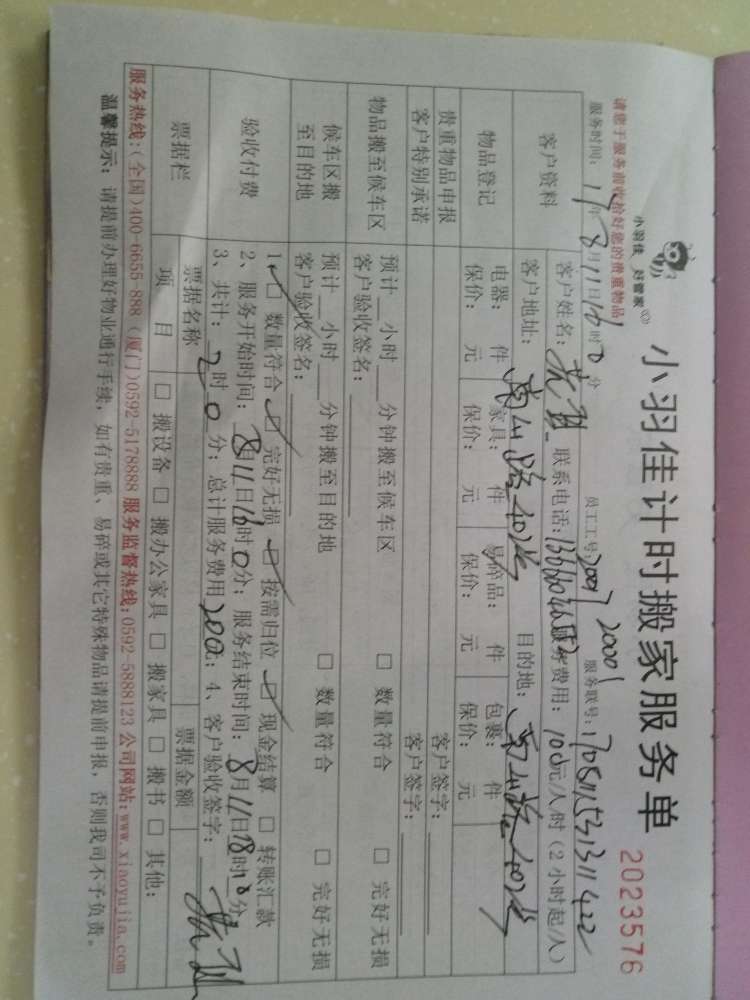 小羽佳计时搬家服务单
2023576
小羽佳 好管家
请您于服务前收拾好您的贵重物品
员工工号: 服务联号:
服务时间: 17年8月11日16时0分
客户资料
客户姓名: 联系电话: 服务费用: 100元/人/时(2小时起/人)
客户地址: 南山路 402 目的地: 南山路 402
物品登记
电器: 件 家具: 件 易碎品: 件 包裹: 件
保价: 元 保价: 元 保价: 元 保价: 元
贵重物品申报 客户签字:
客户特别承诺 客户签字:
物品搬至候车区
预计 小时 分钟搬至候车区 □ 数量符合 □ 完好无损
客户验收签名:
候车区搬至目的地
预计 小时 分钟搬至目的地 □ 数量符合 □ 完好无损
客户验收签名:
验收付费
1、□ 数量符合 □ 完好无损 □ 按需归位 □ 现金结算 □ 转账汇款
2、服务开始时间: 8月11日16时0分; 服务结束时间: 8月11日18时0分
3、共计: 2时0分; 总计服务费用200; 4、客户验收签字:
票据栏
票据名称 票据金额
项 目 □ 搬设备 □ 搬办公家具 □ 搬家具 □ 搬书 □ 其他:
服务热线:(全国)400-6655-888 (厦门)0592-5178888 服务监督热线:0592-5888123 公司网站:www.xiaoyujia.com
温馨提示: 请提前办理好物业通行手续, 如有贵重、易碎或其它特殊物品请提前申报, 否则我司不予负责。